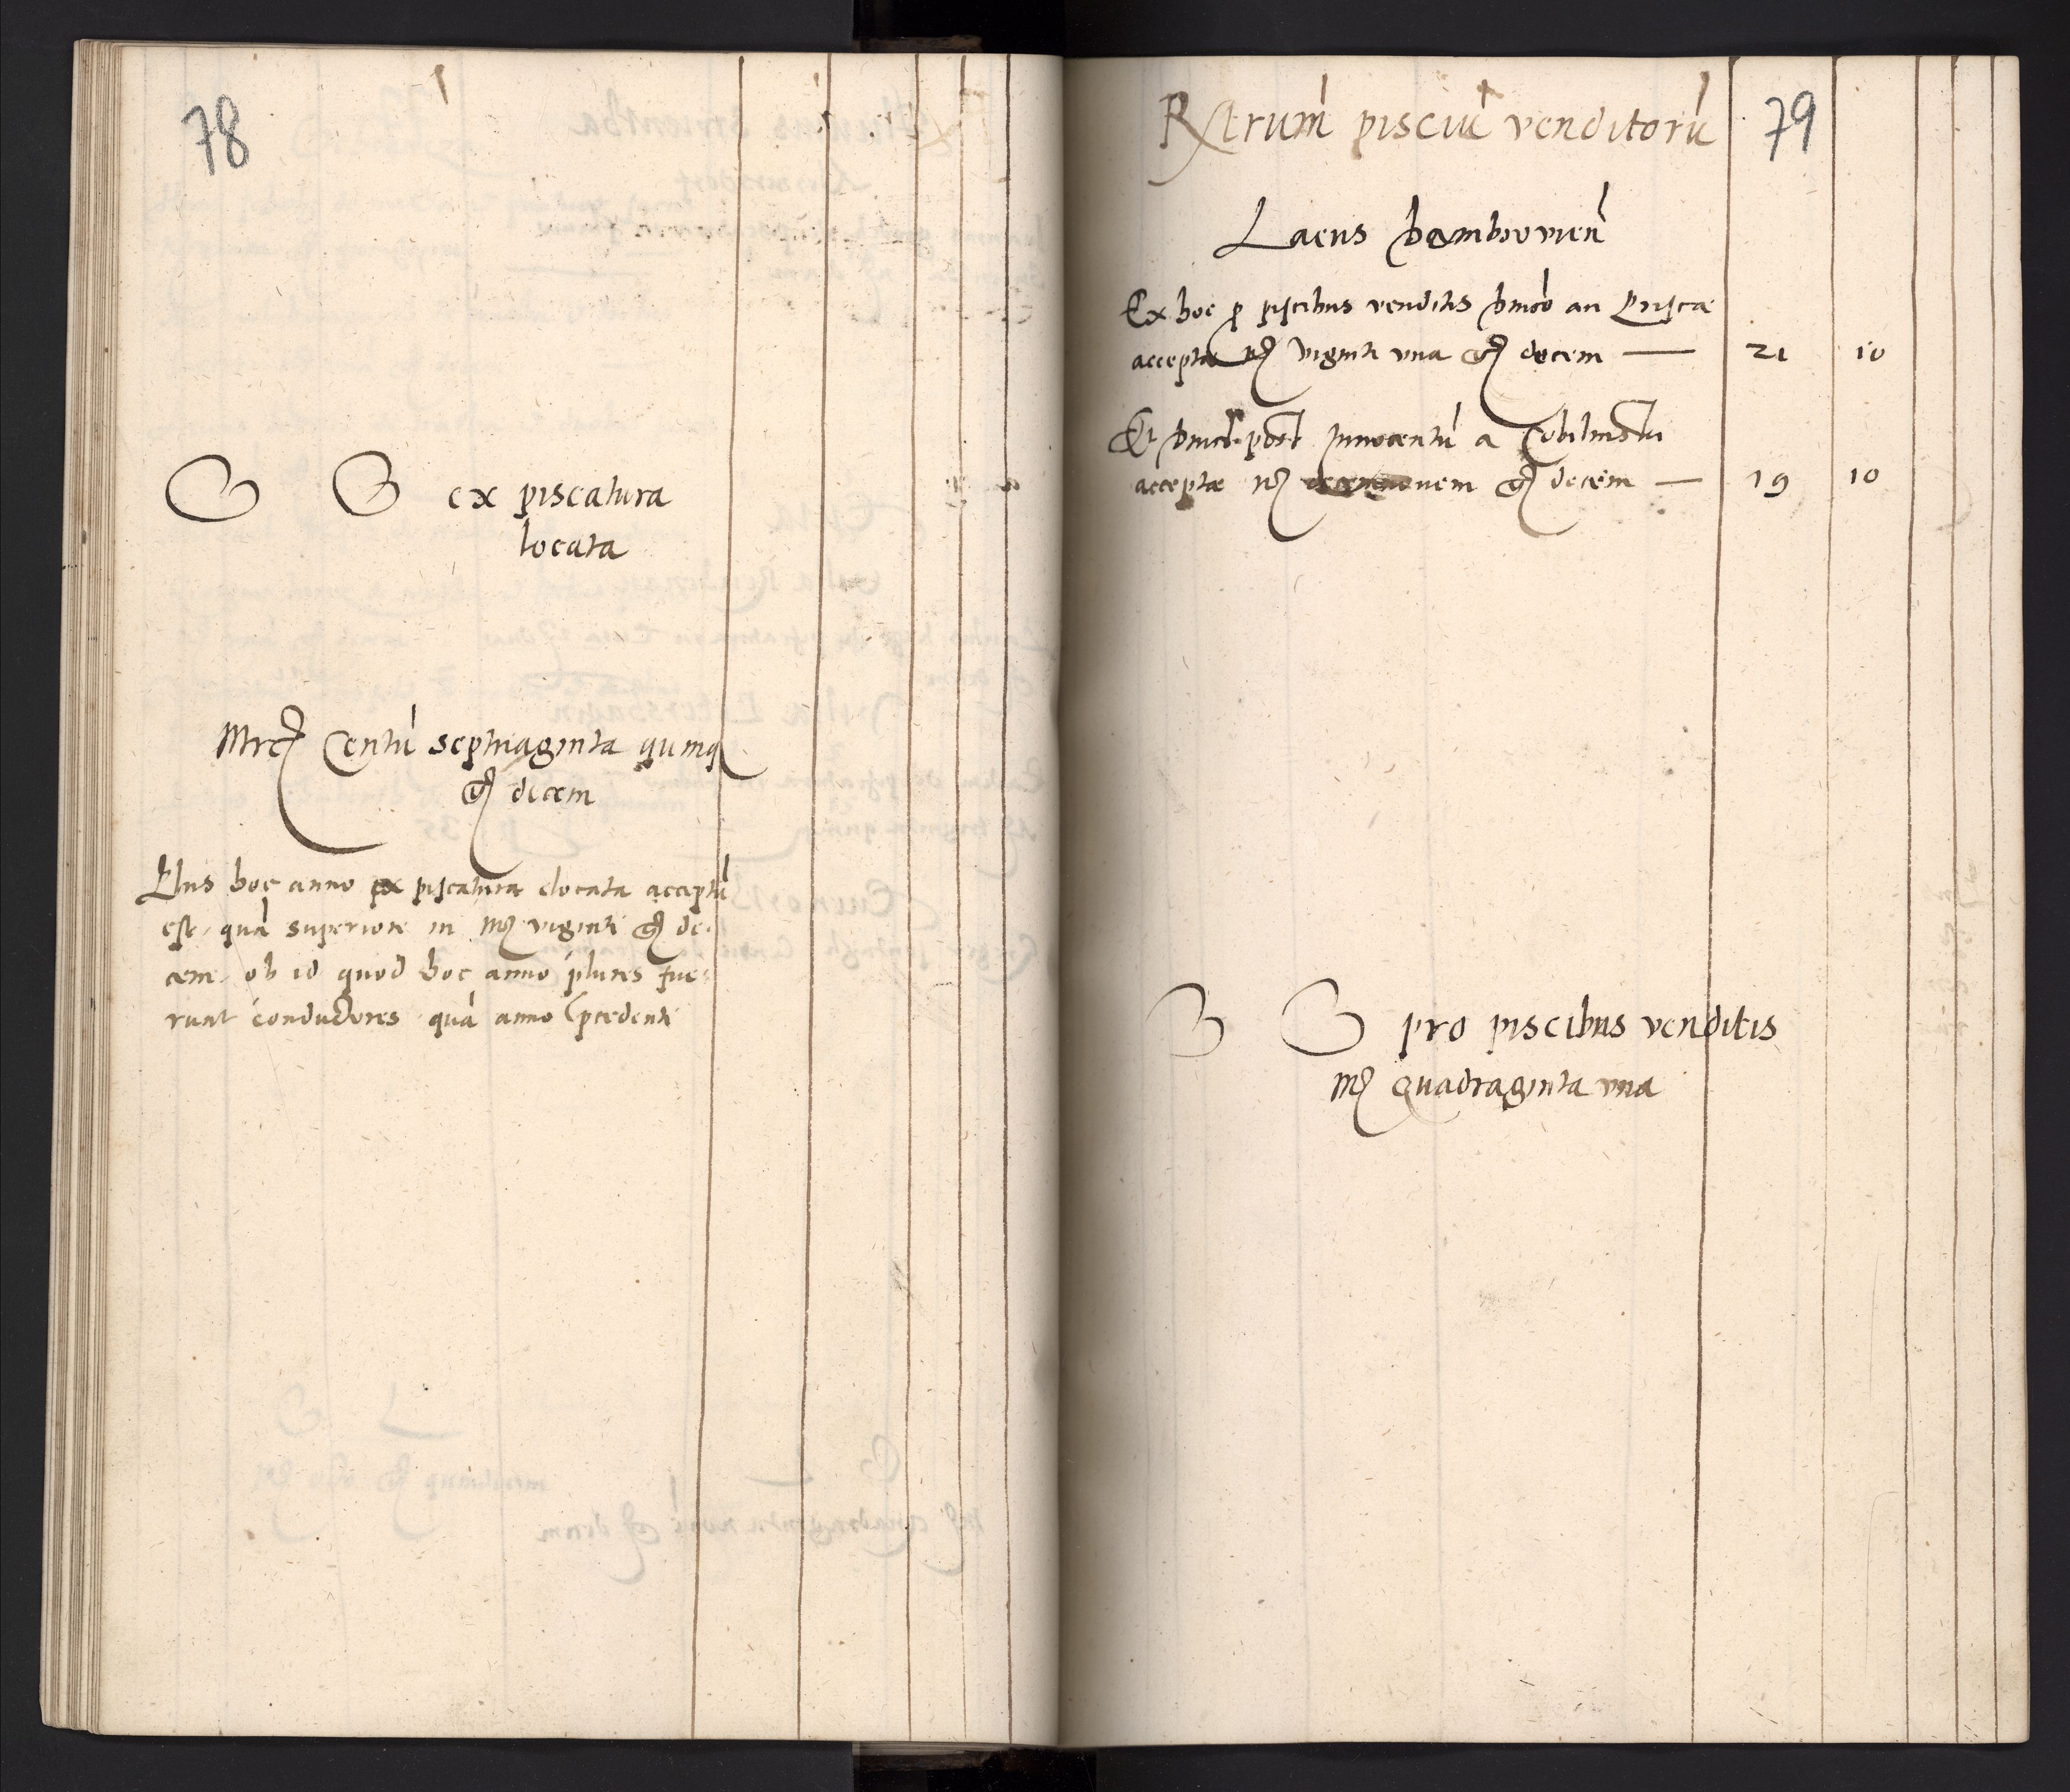 78
S S ex piscatura
locata
Mrc Centū septuaginta quinq
gʳ decem
Plus hoc anno ex piscatura elocata acceptū
est, quā superiore in mʳ viginti gʳ de:
cem, ob id quod hoc anno plures fue:
runt conductores quā anno pcedenti
Rstrum pisciū venditorū 79
Lacus
Ex hoc p piscibus venditis an
acceptae mʳ viginti una gʳ decem — 21 10
Et post Innocentū a
acceptae mʳ decemnovem gʳ decem — 19 10
S S pro piscibus venditis
mʳ quadraginta una